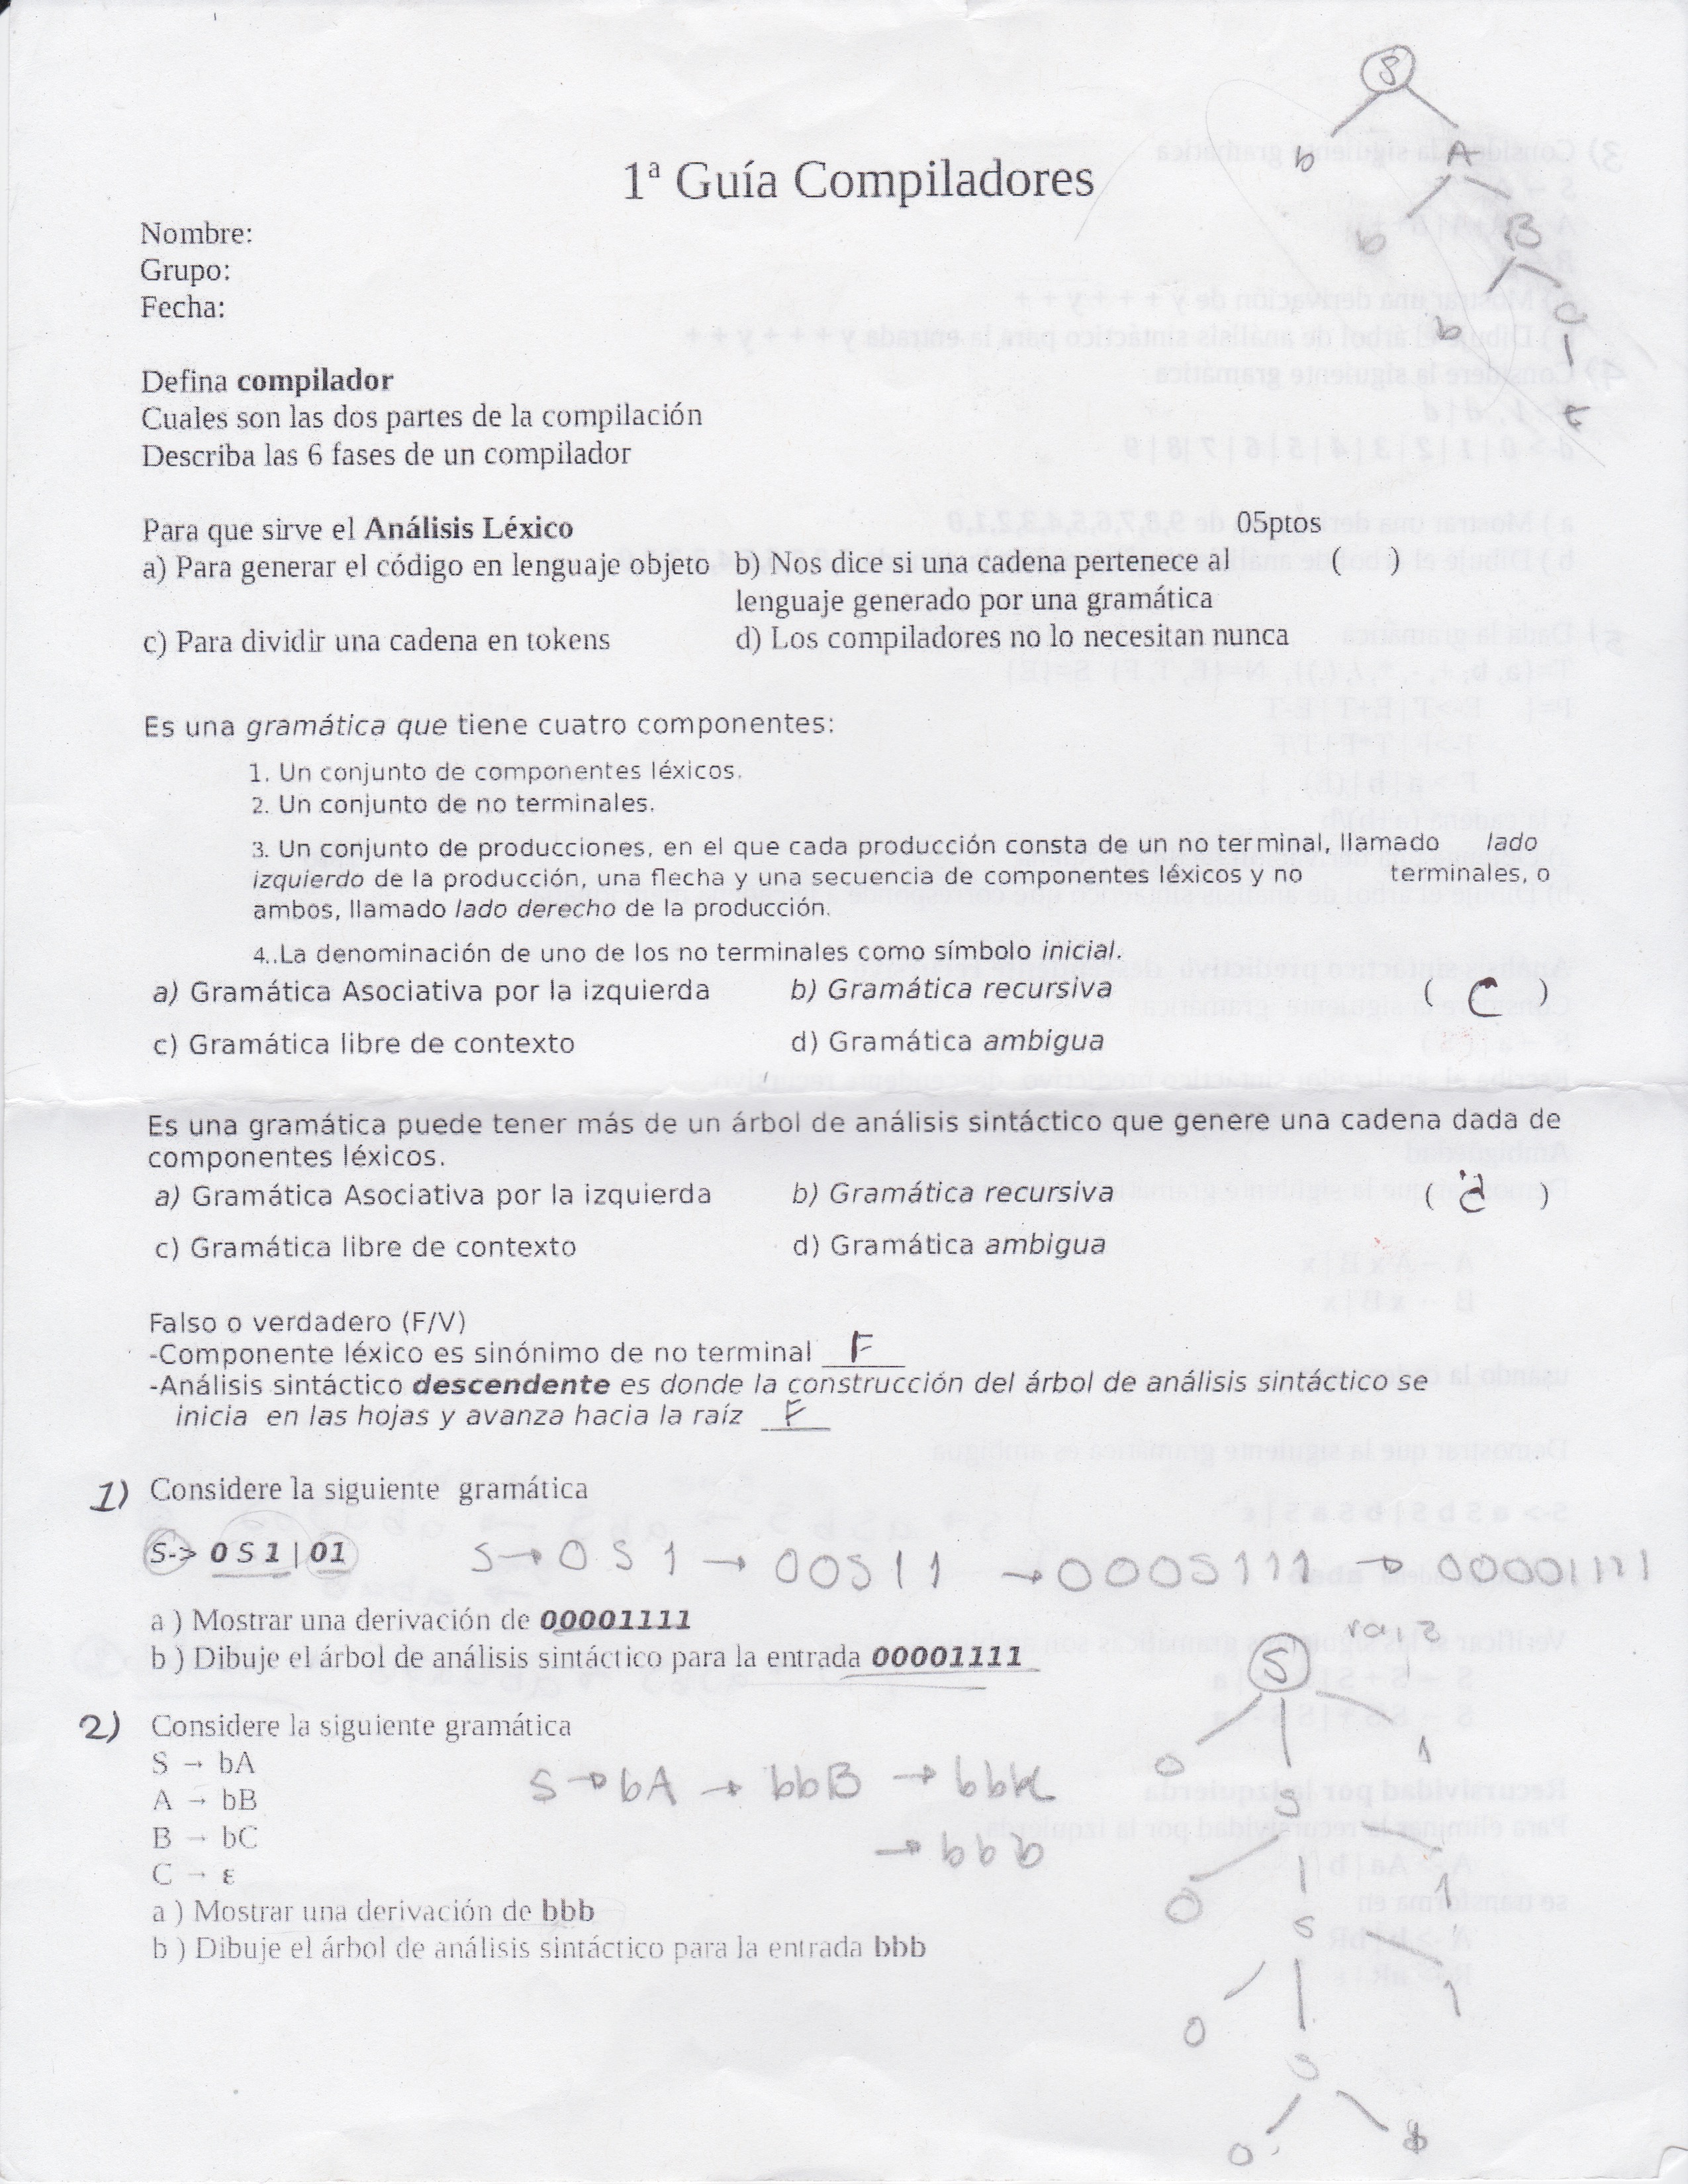 1ª Guía Compiladores
Nombre:
Grupo:
Fecha:
S
b A
b B
b
Defina compilador
Cuales son las dos partes de la compilación
Describa las 6 fases de un compilador
Para que sirve el Análisis Léxico 05ptos
a) Para generar el código en lenguaje objeto b) Nos dice si una cadena pertenece al ( )
lenguaje generado por una gramática
c) Para dividir una cadena en tokens d) Los compiladores no lo necesitan nunca
Es una gramática que tiene cuatro componentes:
1. Un conjunto de componentes léxicos.
2. Un conjunto de no terminales.
3. Un conjunto de producciones, en el que cada producción consta de un no terminal, llamado lado
izquierdo de la producción, una flecha y una secuencia de componentes léxicos y no terminales, o
ambos, llamado lado derecho de la producción.
4..La denominación de uno de los no terminales como símbolo inicial.
a) Gramática Asociativa por la izquierda b) Gramática recursiva ( C )
c) Gramática libre de contexto d) Gramática ambigua
Es una gramática puede tener más de un árbol de análisis sintáctico que genere una cadena dada de
componentes léxicos.
a) Gramática Asociativa por la izquierda b) Gramática recursiva ( )
c) Gramática libre de contexto d) Gramática ambigua
Falso o verdadero (F/V)
-Componente léxico es sinónimo de no terminal F
-Análisis sintáctico descendente es donde la construcción del árbol de análisis sintáctico se
inicia en las hojas y avanza hacia la raíz F
1) Considere la siguiente gramática
S-> 0 S 1 | 01 S→0 S 1 → 00S11 → 000S111 → 00001111
a ) Mostrar una derivación de 00001111
b ) Dibuje el árbol de análisis sintáctico para la entrada 00001111
raiz
S
2) Considere la siguiente gramática
S → bA
A → bB
B → bC
C → ε
S → bA → bbB →
→ bbb
a ) Mostrar una derivación de bbb
b ) Dibuje el árbol de análisis sintáctico para la entrada bbb
0 S 1
0 S 1
0 S 1
0